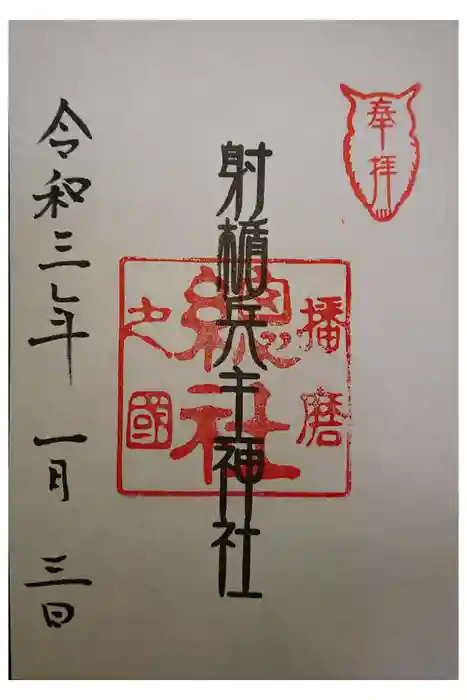 奉拝
播磨
總社
之國
射楯兵主神社
令和三年
一月
三日